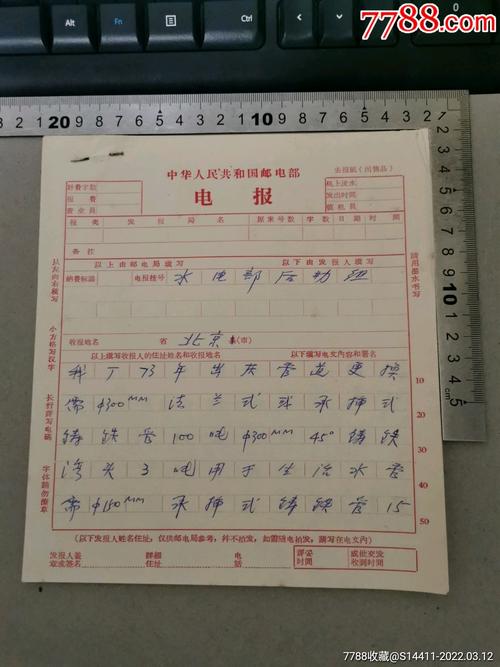 7788.com
中华人民共和国邮电部
去报纸(出售品)
电报
计费字数
报费
营业员
机上流水
发出时间
值机员
报类 发报局名 原来号数 字数 日期 时间
备注
以上由邮电局填写 以下由发报人填写
纳费标识
电报挂号 水电部后勤组
收报地名 省 北京 (市)
以上填写收报人的住址姓名和收报地名 以下填写电文内容和署名
我厂73年出灰管道更换 10
需φ300mm法兰式或承插式 20
铸铁管100吨φ300mm45°铸铁 30
湾头3吨用于生治水管 40
需φ150mm承插式铸铁管15 50
(以下发报人姓名住址,仅供邮电局参考,并不拍发,如需随电拍发,请写在电文内)
发报人盖章或签名
详细住址
电话
译妥时间
或批交发收到时间
从左向右横写
小方格写汉字
长行背写电码
字体请勿潦草
请用墨水书写
7788收藏@S14411-2022.03.12